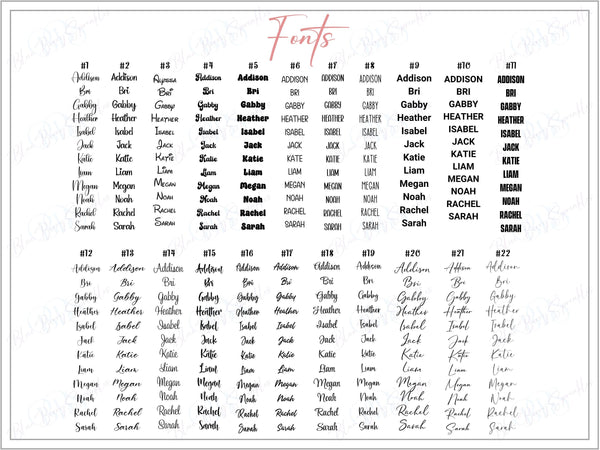 Fonts
#1 #2 #3 #4 #5 #6 #7 #8 #9 #10 #11
Addison Addison Alyssa Addison Addison ADDISON ADDISON ADDISON Addison ADDISON ADDISON
Bri Bri Bri Bri Bri BRI BRI BRI Bri BRI BRI
Gabby Gabby Gabby Gabby Gabby GABBY GABBY GABBY Gabby GABBY GABBY
Heather Heather Heather Heather Heather HEATHER HEATHER HEATHER Heather HEATHER HEATHER
Isabel Isabel Isabel Isabel Isabel ISABEL ISABEL ISABEL Isabel ISABEL ISABEL
Jack Jack Jack Jack Jack JACK JACK JACK Jack JACK JACK
Katie Katie Katie Katie Katie KATIE KATIE KATIE Katie KATIE KATIE
Liam Liam Liam Liam Liam LIAM LIAM LIAM Liam LIAM LIAM
Megan Megan Megan Megan Megan MEGAN MEGAN MEGAN Megan MEGAN MEGAN
Noah Noah Noah Noah Noah NOAH NOAH NOAH Noah NOAH NOAH
Rachel Rachel Rachel Rachel Rachel RACHEL RACHEL RACHEL Rachel RACHEL RACHEL
Sarah Sarah Sarah Sarah Sarah SARAH SARAH SARAH Sarah SARAH SARAH
#12 #13 #14 #15 #16 #17 #18 #19 #20 #21 #22
Addison Addison Addison Addison Addison Addison Addison Addison Addison Addison Addison
Bri Bri Bri Bri Bri Bri Bri Bri Bri Bri Bri
Gabby Gabby Gabby Gabby Gabby Gabby Gabby Gabby Gabby Gabby Gabby
Heather Heather Heather Heather Heather Heather Heather Heather Heather Heather Heather
Isabel Isabel Isabel Isabel Isabel Isabel Isabel Isabel Isabel Isabel Isabel
Jack Jack Jack Jack Jack Jack Jack Jack Jack Jack Jack
Katie Katie Katie Katie Katie Katie Katie Katie Katie Katie Katie
Liam Liam Liam Liam Liam Liam Liam Liam Liam Liam Liam
Megan Megan Megan Megan Megan Megan Megan Megan Megan Megan Megan
Noah Noah Noah Noah Noah Noah Noah Noah Noah Noah Noah
Rachel Rachel Rachel Rachel Rachel Rachel Rachel Rachel Rachel Rachel Rachel
Sarah Sarah Sarah Sarah Sarah Sarah Sarah Sarah Sarah Sarah Sarah